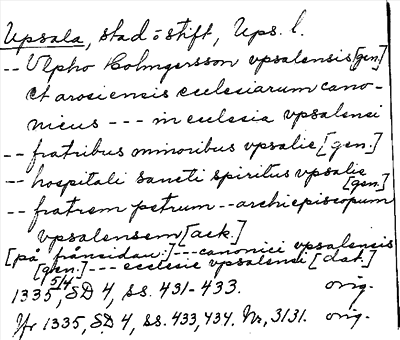 Upsala, stad o stift, Ups. l.
-- Ulpho Holmgersson vpsalensis [gen.]
et arosiensis ecclesiarum cano-
nicus --- in ecclesia vpsalensi
-- fratribus minoribus vpsalie [gen.]
-- hospitali sancti spiritus vpsalie [gen.]
-- fratrem petrum -- archiepiscopum
vpsalensem [ack.]
[på frånsidan:] --- canonici vpsalensis
[gen.] --- ecclesie vpsalensi [dat.]
1335 5/4, SD 4, ss. 431-433. orig.
Jfr 1335, SD 4, ss. 433, 434. Nr, 3131. orig.